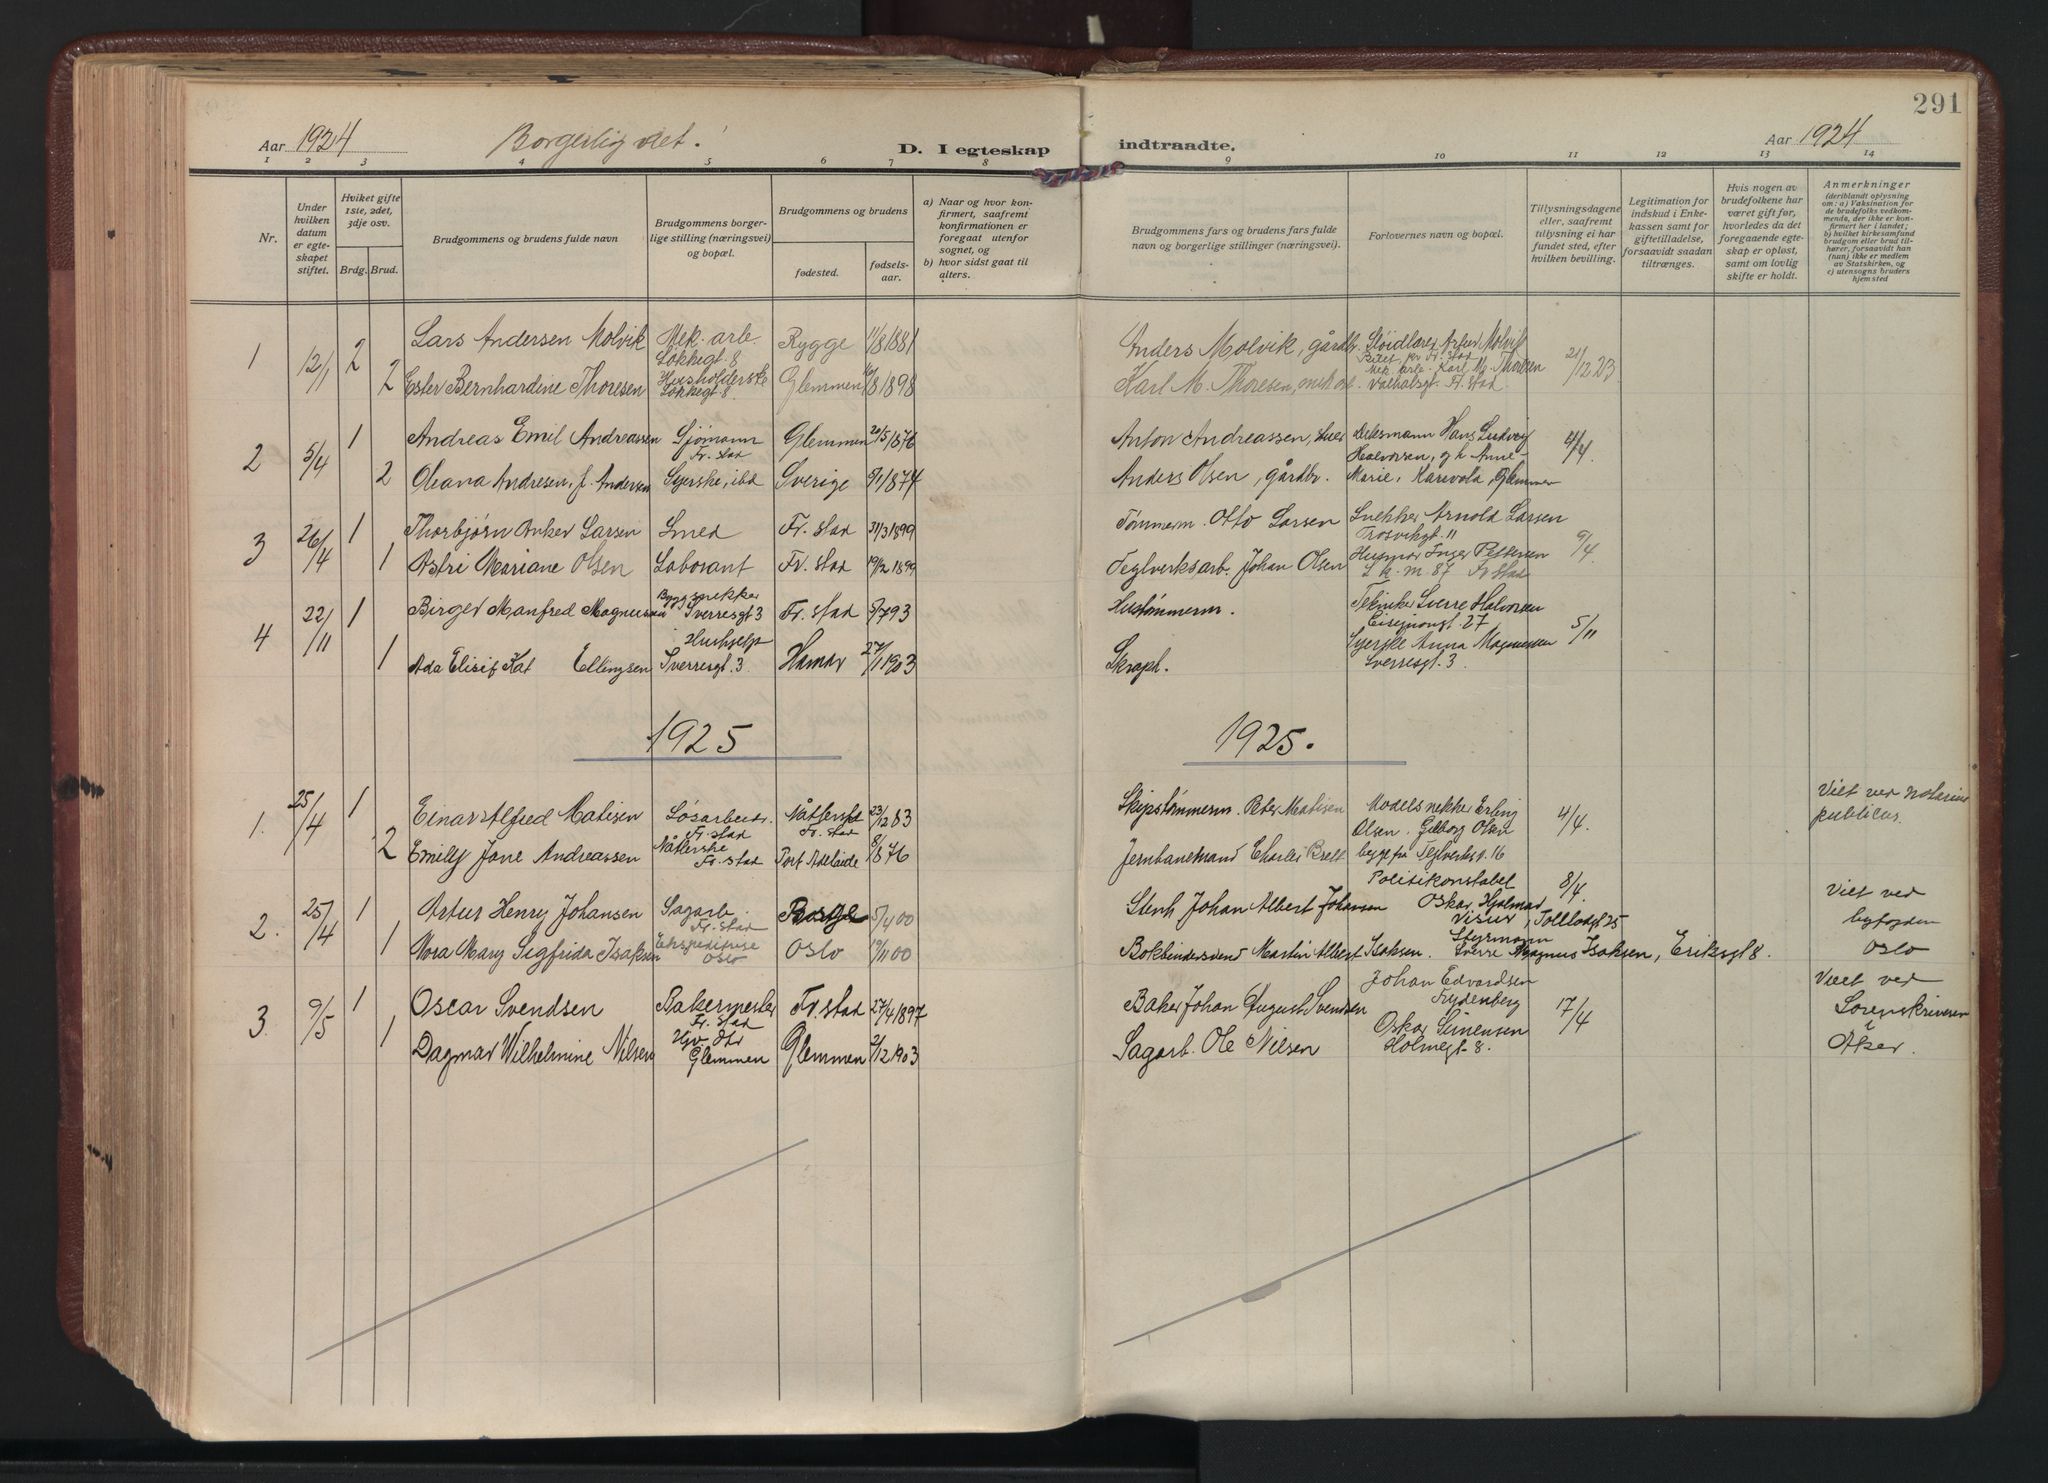 291
Aar 1924 Borgerlig viet! D. I egteskap indtraadte. Aar 1924
1 2 3 4 5 6 7 8 9 10 11 12 13 14
Nr.
Under hvilken datum er egteskapet stiftet.
Hviket gifte 1ste, 2det, 3dje osv.
Brdg. Brud.
Brudgommens og brudens fulde navn
Brudgommens borgerlige stilling (næringsvei) og bopæl.
Brudgommens og brudens
fødested. fødselsaar.
a) Naar og hvor konfirmert, saafremt konfirmationen er foregaat utenfor sognet, og
b) hvor sidst gaat til alters.
Brudgommens fars og brudens fars fulde navn og borgerlige stillinger (næringsvei).
Forlovernes navn og bopæl.
Tillysningsdagene eller, saafremt tillysning ei har fundet sted, efter hvilken bevilling.
Legitimation for indskud i Enkekassen samt for giftetilladelse, forsaavidt saadan tiltrænges.
Hvis nogen av brudefolkene har været gift før, hvorledes da det foregaaende egteskap er opløst, samt om lovlig skifte er holdt.
Anmerkninger
(deriblandt oplysning om: a) Vaksination for de brudefolks vedkommende, der ikke er konfirmert her i landet; b) hvilket kirkesamfund brudgom eller brud tilhører, forsaavidt han (hun) ikke er medlem av Statskirken, og c) utensogns bruders hjemsted
1 12/1 2 Lars Andersen Molvik Mek. arb. Lökkegt 8 Rygge 11/8 1881 Anders Molvik, gårdbr. Sløidlærer Artur Molvik
2 Ester Bernhardine Thoresen Husholderske Lökkegt 8. Glemmen /8 1898 Karl M. Thoresen, mek arb. Mek. arb. Karl M. Thoresen Valhalsgt. Fr. stad 21/12 23
2 5/4 1 Andreas Emil Andreassen Sjømann Fr. stad Glemmen 20/5 1876 Anton Andreassen, Hans Ludvig Halvorsen, og h. Anne- 4/4
2 Oleana Andresen, f. Andersen Syerske, ibd Sverige 9/1 1874 Anders Olsen, gårdbr. Marie, Karivold, Glemmen
3 26/4 1 Thorbjørn Anker Larsen Smed Fr. stad 31/3 1899 Tømmerm. Otto Larsen Snekker Arnold Larsen Trosvikgt. 11
1 Astri Mariane Olsen Laborant Fr. stad 19/2 1899 Teglverksarb. Johan Olsen Husmor Inger Pettersen L. k. m. 87 Fr stad 9/4
4 22/11 1 Birger Manfred Magnussen Byggsnekker Sverresgt 3 Fr. stad 5/7 93 Hustømmerm. Tekniker Sverre Halvorsen 27
1 Ada Elisif Kat Ellingsen Hushjelp Sverresgt. 3 Hamar 27/11 1903 Skraph. Syerske Anna Magnussen Sverresgt. 3 5/11
1925 1925.
1. 25/4 1 Einar Alfred Matisen Løsarbeider Fr. stad Fr. stad 23/12 83 Skipstømmerm. Peter Matisen Modelsnekker Erling Olsen. Gelborg Olsen 4/4. Viet ved notarius publicus.
2 Emily Jane Andreassen Fr. stad Port Adelaide 8/8 76 Jernbanemand Charles Brett begge fra Teglverksv. 16
2. 25/4 1 Artur Henry Johansen Sagarb. Fr. stad Borge 5/4 00 Stenh Johan Albert Johansen Politikonstabel Oskar Hjalmar Visur, Tollbodgt 25 8/4. Viet ved byfogden
1 Nora Mary Sigfrida Isaksen Ekspeditrise Oslo Oslo 19/11 00 Bokbindersvend Martin Albert Isaksen. Styrmann Sverre Magnus Isaksen, Eriksgt 8. Oslo
3. 9/5 1 Oscar Svendsen Bakermester Fr. stad Fr. stad 27/4 1897 Baker Johan August Svendsen Johan Edvardsen Frydenberg 17/4 Viet ved Sorenskriveren
1 Dagmar Wilhelmine Nilsen Glemmen Glemmen 2/12 1903 Sagarb. Ole Nilsen Oskar Simensen Holmegt. 8. i Aker.